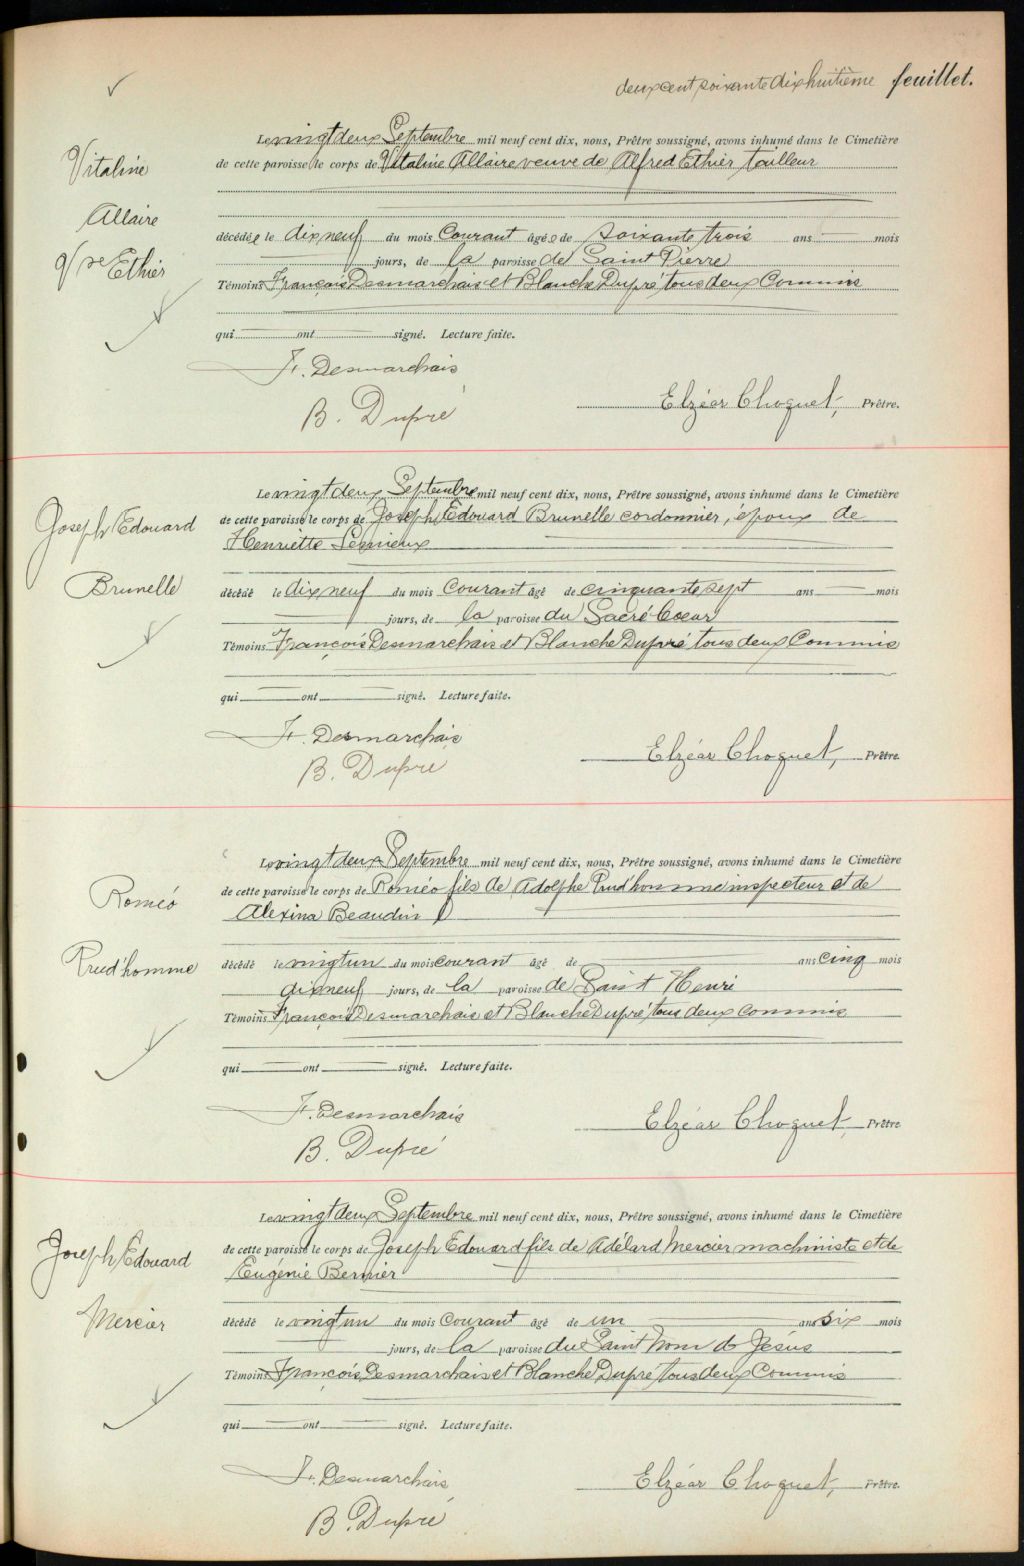 deux cent soixante dix huitième feuillet.
Vitaline
Allaire
Vve Ethier
Le vingt deux Septembre mil neuf cent dix, nous, Prêtre soussigné, avons inhumé dans le Cimetière
de cette paroisse le corps de Vitaline Allaire veuve de Alfred Ethier tailleur
décédée le dix neuf du mois Courant âgée de soixante trois ans mois
jours, de la paroisse de Saint Pierre
Témoins François Desmarchais et Blanche Dupré tous deux Commis
qui ont signé. Lecture faite.
F. Desmarchais
B. Dupré
Elzéar Choquet, Prêtre.
Joseph Edouard
Brunelle
Le vingt deux Septembre mil neuf cent dix, nous, Prêtre soussigné, avons inhumé dans le Cimetière
de cette paroisse le corps de Joseph Edouard Brunelle cordonnier, époux de
Henriette Lemieux
décédé le dix neuf du mois Courant âgé de cinquante sept ans mois
jours, de la paroisse du Sacré Coeur
Témoins François Desmarchais et Blanche Dupré tous deux Commis
qui ont signé. Lecture faite.
F. Desmarchais
B. Dupré
Elzéar Choquet, Prêtre.
Roméo
Prud'homme
Le vingt deux Septembre mil neuf cent dix, nous, Prêtre soussigné, avons inhumé dans le Cimetière
de cette paroisse le corps de Roméo fils de Adolphe Prud'homme inspecteur et de
Alexina Beaudin
décédé le vingt un du mois courant âgé de ans cinq mois
dix neuf jours, de la paroisse de Saint Henri
Témoins François Desmarchais et Blanche Dupré tous deux commis
qui ont signé. Lecture faite.
F. Desmarchais
B. Dupré
Elzéar Choquet, Prêtre
Joseph Edouard
Mercier
Le vingt deux Septembre mil neuf cent dix, nous, Prêtre soussigné, avons inhumé dans le Cimetière
de cette paroisse le corps de Joseph Edouard fils de Adélard Mercier machiniste et de
Eugénie Bernier
décédé le vingt un du mois Courant âgé de un ans six mois
jours, de la paroisse du Saint Nom de Jésus
Témoins François Desmarchais et Blanche Dupré tous deux Commis
qui ont signé. Lecture faite.
F. Desmarchais
B. Dupré
Elzéar Choquet, Prêtre.